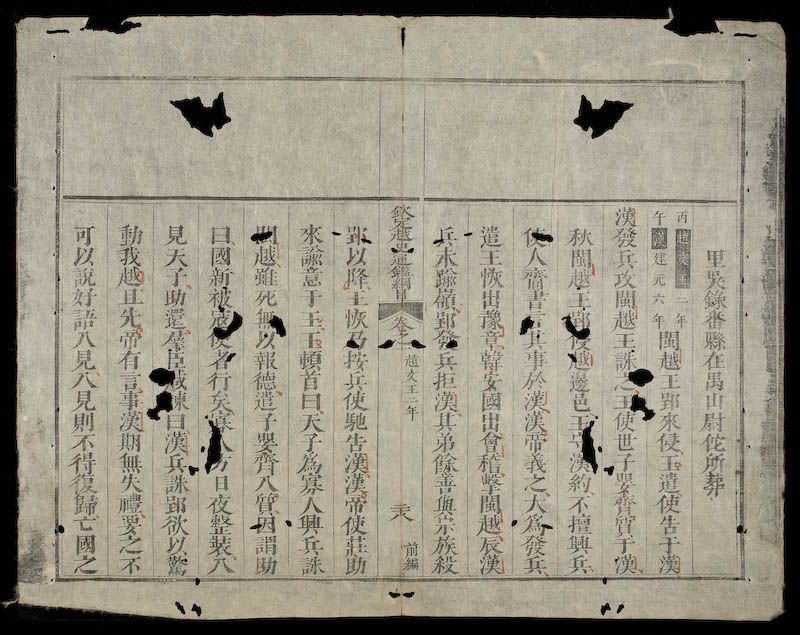 里吳錄番縣在禺山尉佗所葬
丙午 趙文王二年 漢建元六年 閩越王郢來侵王遣使告于漢
漢發兵攻閩越王誅之王使世子嬰齊質于漢
秋閩越王郢侵越邊邑王守漢約不擅興兵
使人齎書言其事於漢漢帝義之大爲發兵
遣王恢出豫章韓安國出會稽擊閩越辰漢
兵未踰嶺郢發兵拒漢其弟餘善與宗族殺
欽定越史通鑑綱目 卷之一 趙文王二年 前編
郢以降王恢乃按兵使馳告漢漢帝使莊助
來諭意于王王頓首曰天子爲寡人興兵誅
閩越雖死無以報德遣子嬰齊入質因謂助
曰國新被寇使者行矣寡人方日夜整裝入
見天子助還羣臣咸諫曰漢兵誅郢欲以驚
動我越且先帝有言事漢期無失禮要之不
可以說好語入見入見則不得復歸亡國之